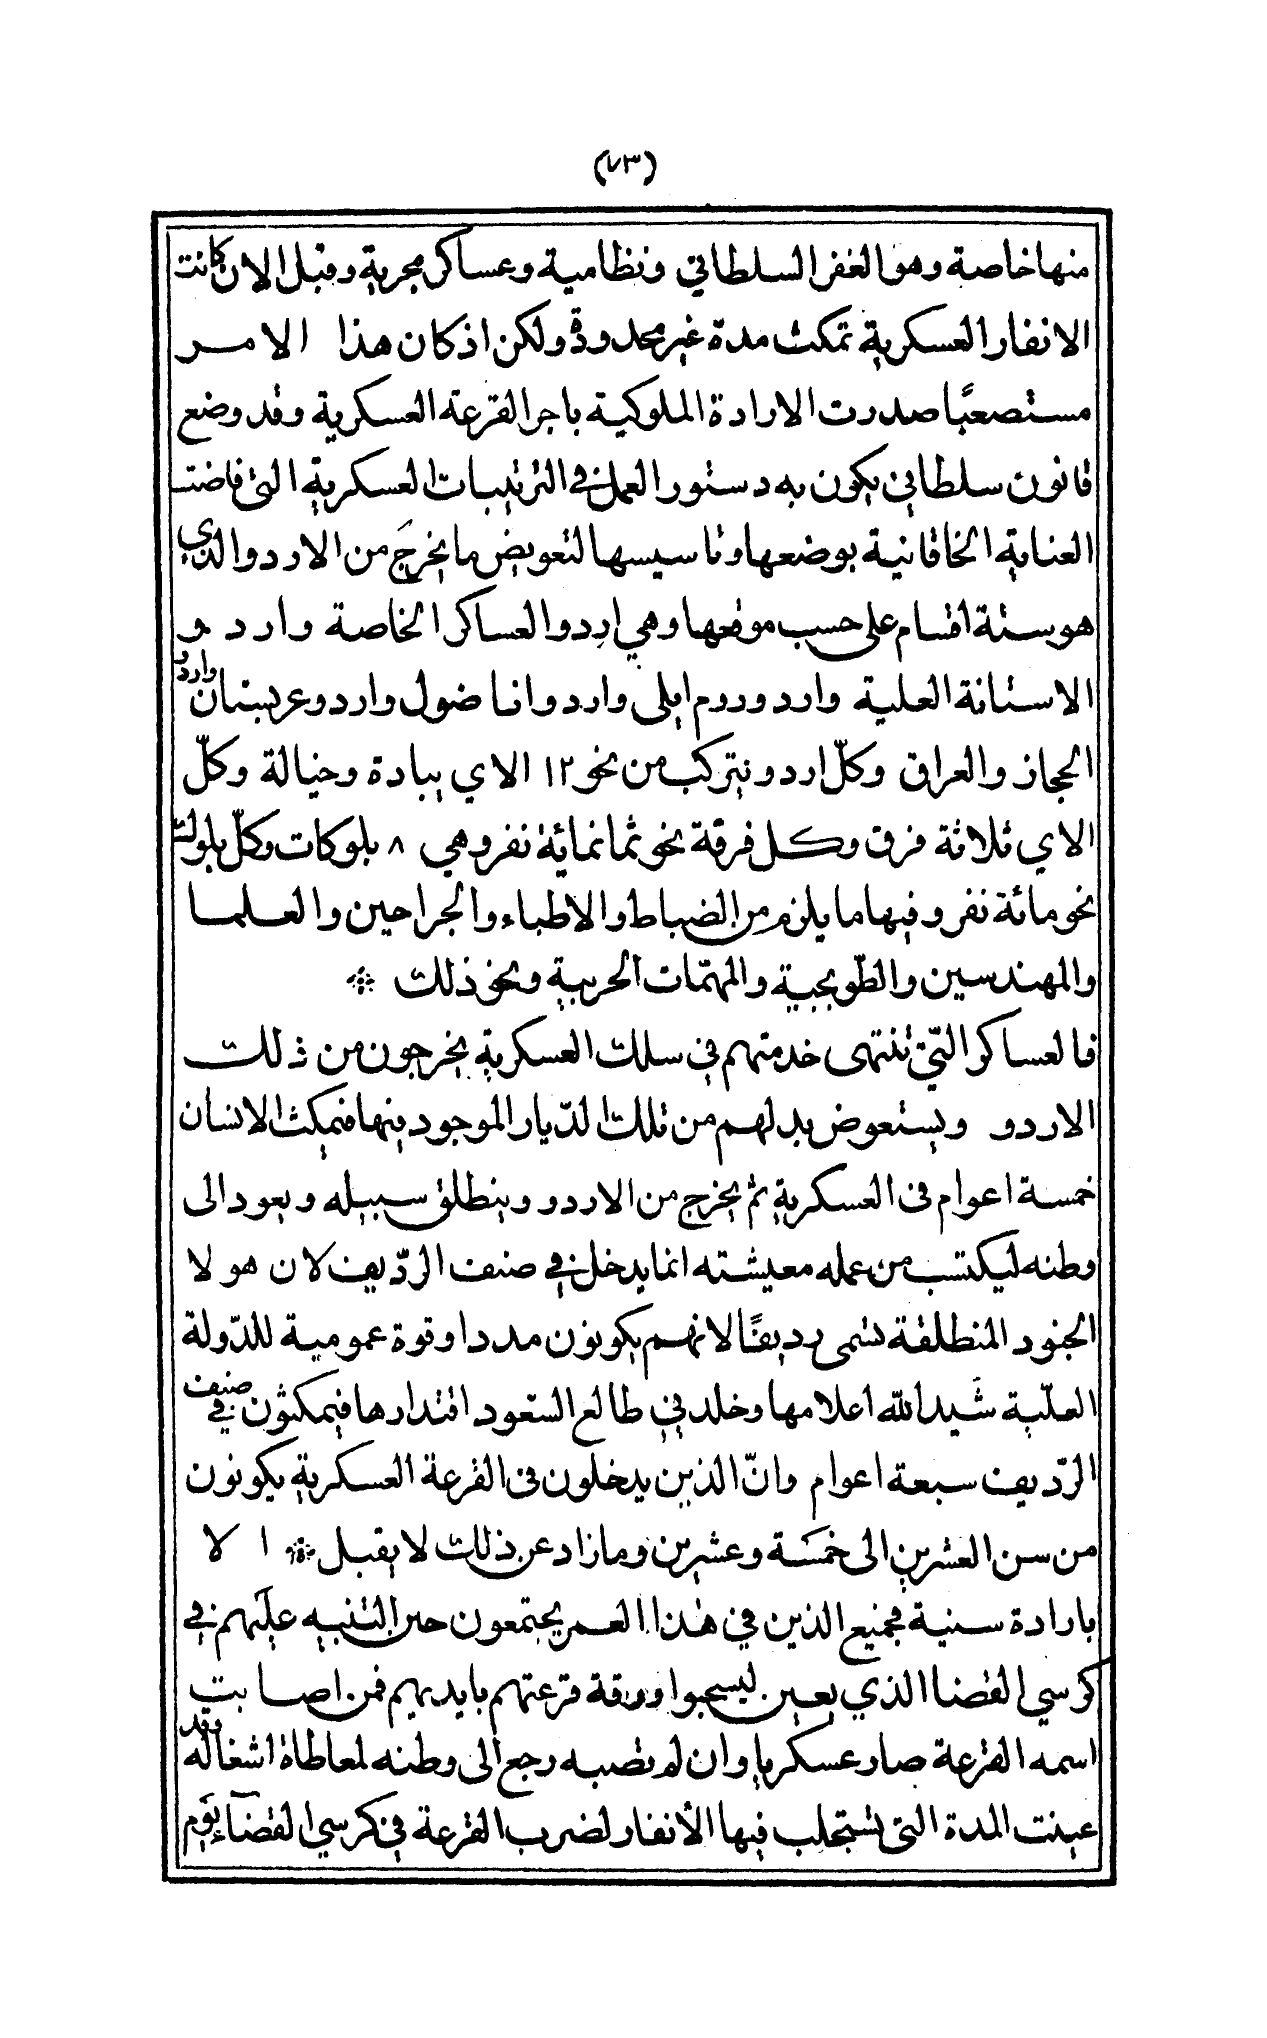 (٧٣)
منها خاصة وهو الغفر السلطاني ونظامية وعساكر بحرية وقبل الان كانت
الانفار العسكرية تمكث مدة غير محدودة ولكن اذ كان هذا الامر
مستصعبًا صدرت الارادة الملوكية باجر القرعة العسكرية وقد وضع
قانون سلطاني يكون به دستور العمل في الترتيبات العسكرية التي فاضت
العناية الخاقانية بوضعها وتاسيسها لتعويض ما يخرج من الاردو الذي
هو ستة اقسام على حسب موقعها وهي اردو العساكر الخاصة وارد و
الاستانة العلية واردو روم ايلي واردو اناضول واردو عربستان واردو
الحجاز والعراق وكلّ اردو يتركب من نحو ١٢ الاي بيادة وخيالة وكلّ
الاي ثلاثة فرق وكل فرقة نحو ثمانماية نفر وهي ٨ بلوكات وكلّ بلوك
نحو مائة نفر وفيها ما يلزم من الضباط والاطباء والجراحين والعلما
والمهندسين والطّوبجية والمهمّات الحربية ونحو ذلك *
فالعساكر التّي تنتهى خدمتهم في سلك العسكرية يخرجون من ذلك
الاردو ويستعوض بدلهم من تلك الدّيار الموجود بنها فيمكث الانسان
خمسة اعوام في العسكرية ثم يخرج من الاردو وينطلق سبيله ويعود الى
وطنه ليكتسب من عمله معيشته انما يدخل في صنف الردّيف لان هو لا
الجنود المنطلقة تسمى رديفًا لانهم يكونون مددا وقوة عمومية للدّولة
العلّية شَيد الله اعلامها وخلد في طالع السّعود اقتدارها فيمكثون في صنف
الرّديف سبعة اعوام وانّ الذين يدخلون في القرعة العسكرية يكونون
من سن العشرين الى خمسَة وعشرين وما زاد عن ذلك لا يقبل * الا
بارادة سنية فجميع الذين في هذا العمر يجتمعون حين التنبيه عليهم في
كرسي القضا الذي يعين ليسحبوا ورقة قرعتهم بايديهم فمن اصابت
اسمه القرعة صار عسكريا وان لم تصبه رجع الى وطنه لمعاطاة اشغاله وقد
عينت المدة التي تستجلب فيها الأنفار لضرب القرعة في كرسي القضاء يوم